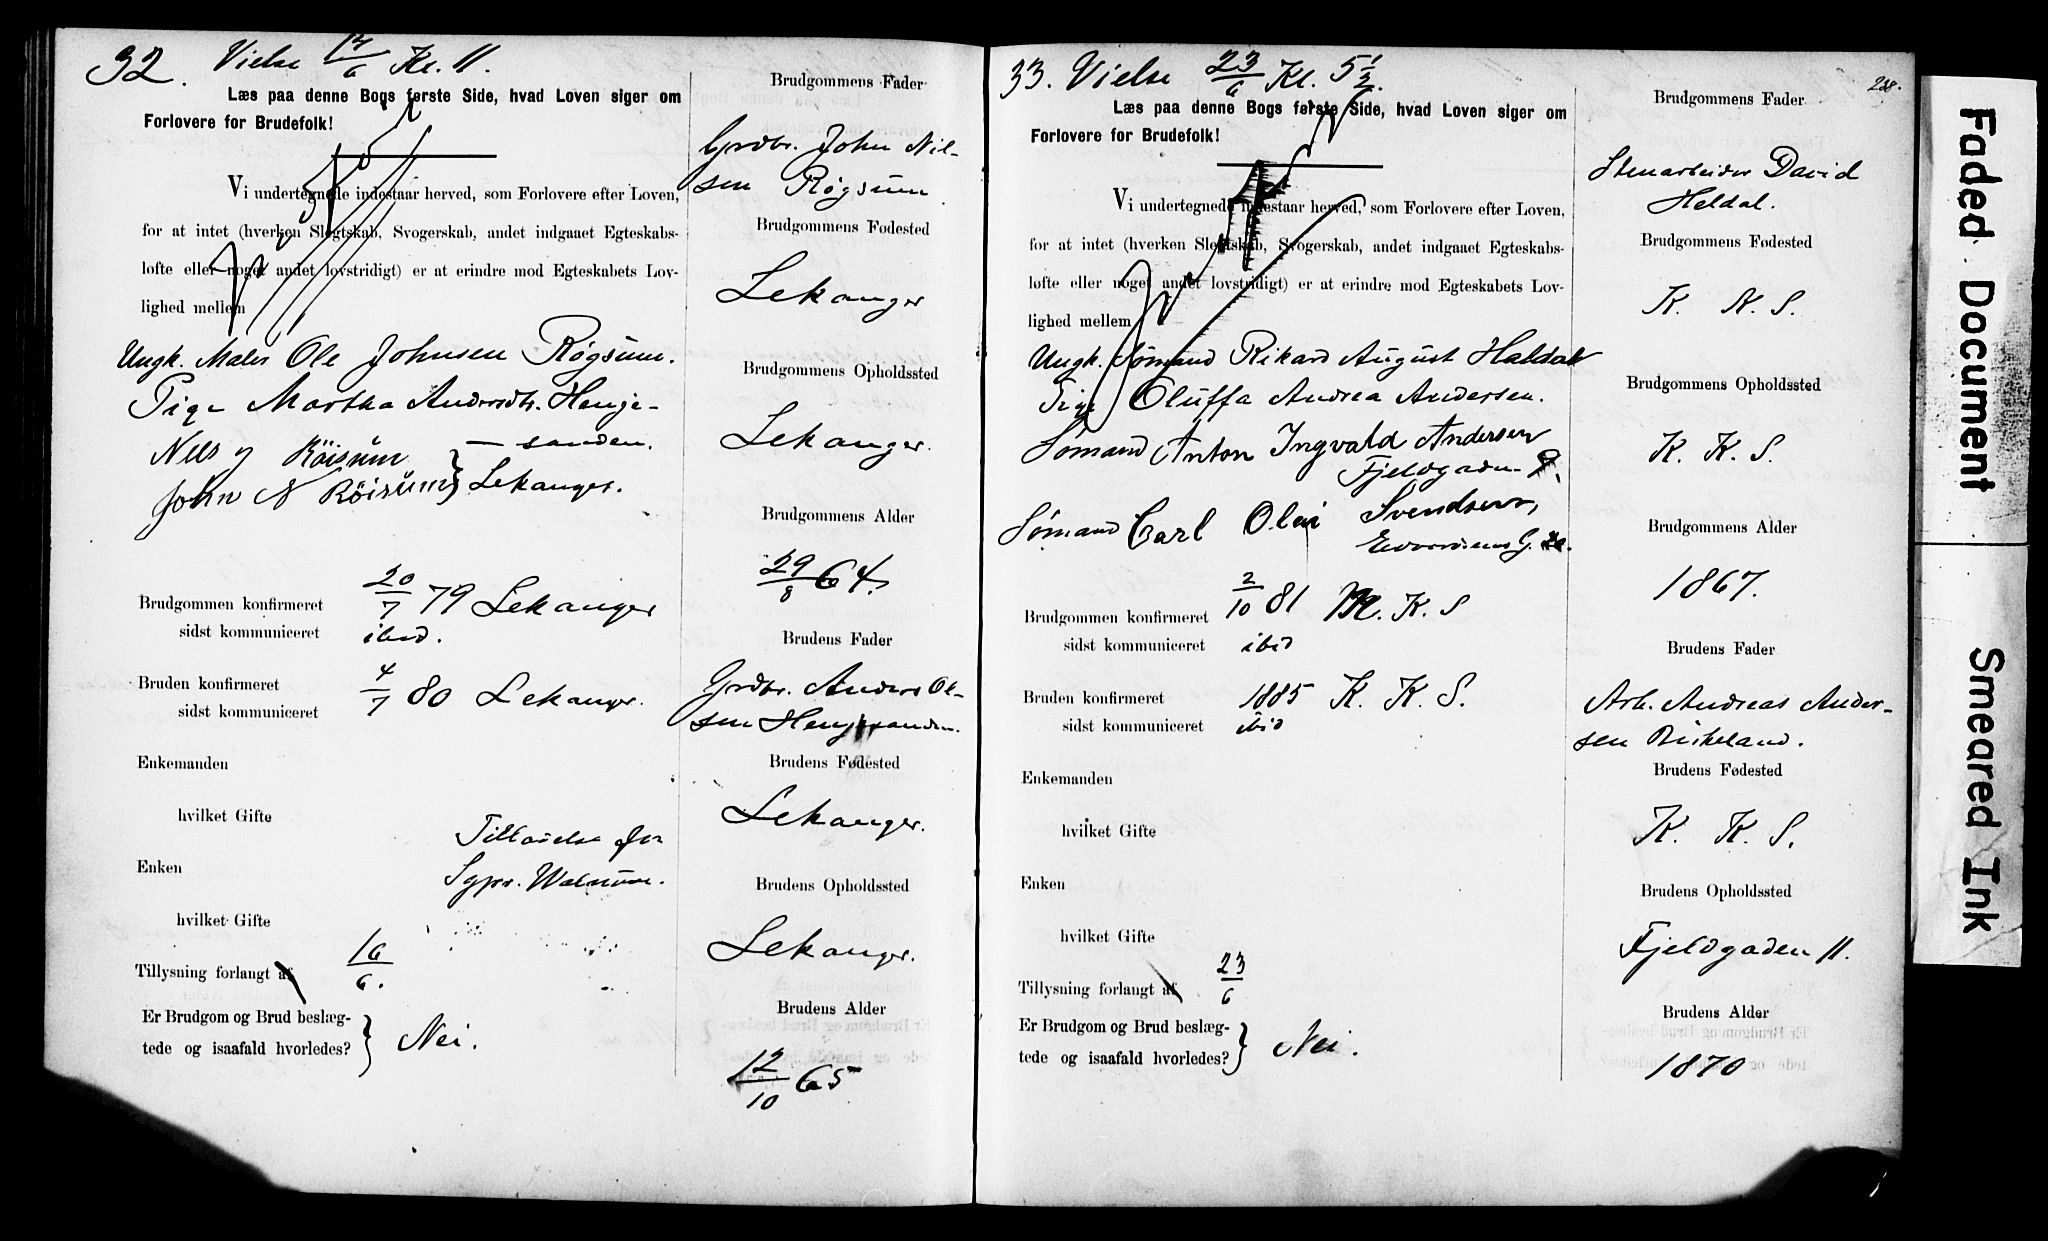 32. Vielse 17/6 Kl. 11.
Læs paa denne Bogs første Side, hvad Loven siger om
Forlovere for Brudefolk!
Vi undertegnede indestaar herved, som Forlovere efter Loven,
for at intet (hverken Slegtskab, Svogerskab, andet indgaaet Egteskabs-
løfte eller noget andet lovstridigt) er at erindre mod Egteskabets Lov-
lighed mellem
Ungk. Maler Ole Johnsen Røgsum.
Pige Martha Andersdtr. Henje-
— sanden.
Nils J Röisum
John N Röisum } Lekanger.
Brudgommen konfirmeret 20/7 79 Lekanger
sidst kommuniceret ibid.
Bruden konfirmeret 4/7 80 Lekanger.
sidst kommuniceret
Enkemanden
hvilket Gifte
Tilladelse fra
Enken
Sgpr. Walnum.
hvilket Gifte
Tillysning forlangt af 16/6.
Er Brudgom og Brud beslæg-
tede og isaafald hvorledes? } Nei.
Brudgommens Fader
Grdbr. John Nil-
sen Røgsum
Brudgommens Fødested
Lekanger
Brudgommens Opholdssted
Lekanger.
Brudgommens Alder
29/8 64.
Brudens Fader
Grdbr. Anders Ol-
sen Henjesanden.
Brudens Fødested
Lekanger.
Brudens Opholdssted
Lekanger.
Brudens Alder
12/10 65
33. Vielse 23/6 Kl. 5 1/2.
Læs paa denne Bogs første Side, hvad Loven siger om
Forlovere for Brudefolk!
Vi undertegnede indestaar herved, som Forlovere efter Loven,
for at intet (hverken Slegtskab, Svogerskab, andet indgaaet Egteskabs-
løfte eller noget andet lovstridigt) er at erindre mod Egteskabets Lov-
lighed mellem
Ungk. Sømand Rikard August Haldal
Pige Oluffa Andrea Andersen.
Sømand Anton Ingvald Andersen
Fjeldgaden
Sømand Carl Olai Svendsen,
G.
Brudgommen konfirmeret 2/10 81 M. K. S
sidst kommuniceret ibid
Bruden konfirmeret 1885 K. K. S.
sidst kommuniceret ibid
Enkemanden
hvilket Gifte
Enken
hvilket Gifte
Tillysning forlangt af 23/6
Er Brudgom og Brud beslæg-
tede og isaafald hvorledes? } Nei.
238.
Brudgommens Fader
Stenarbeider David
Heldal.
Brudgommens Fødested
K. N. S.
Brudgommens Opholdssted
K. K. S.
Brudgommens Alder
1867.
Brudens Fader
Arb. Andreas Ander-
sen Birkeland.
Brudens Fødested
K. K. S.
Brudens Opholdssted
Fjeldgaden 11.
Brudens Alder
1870
Faded Document
Smeared Ink